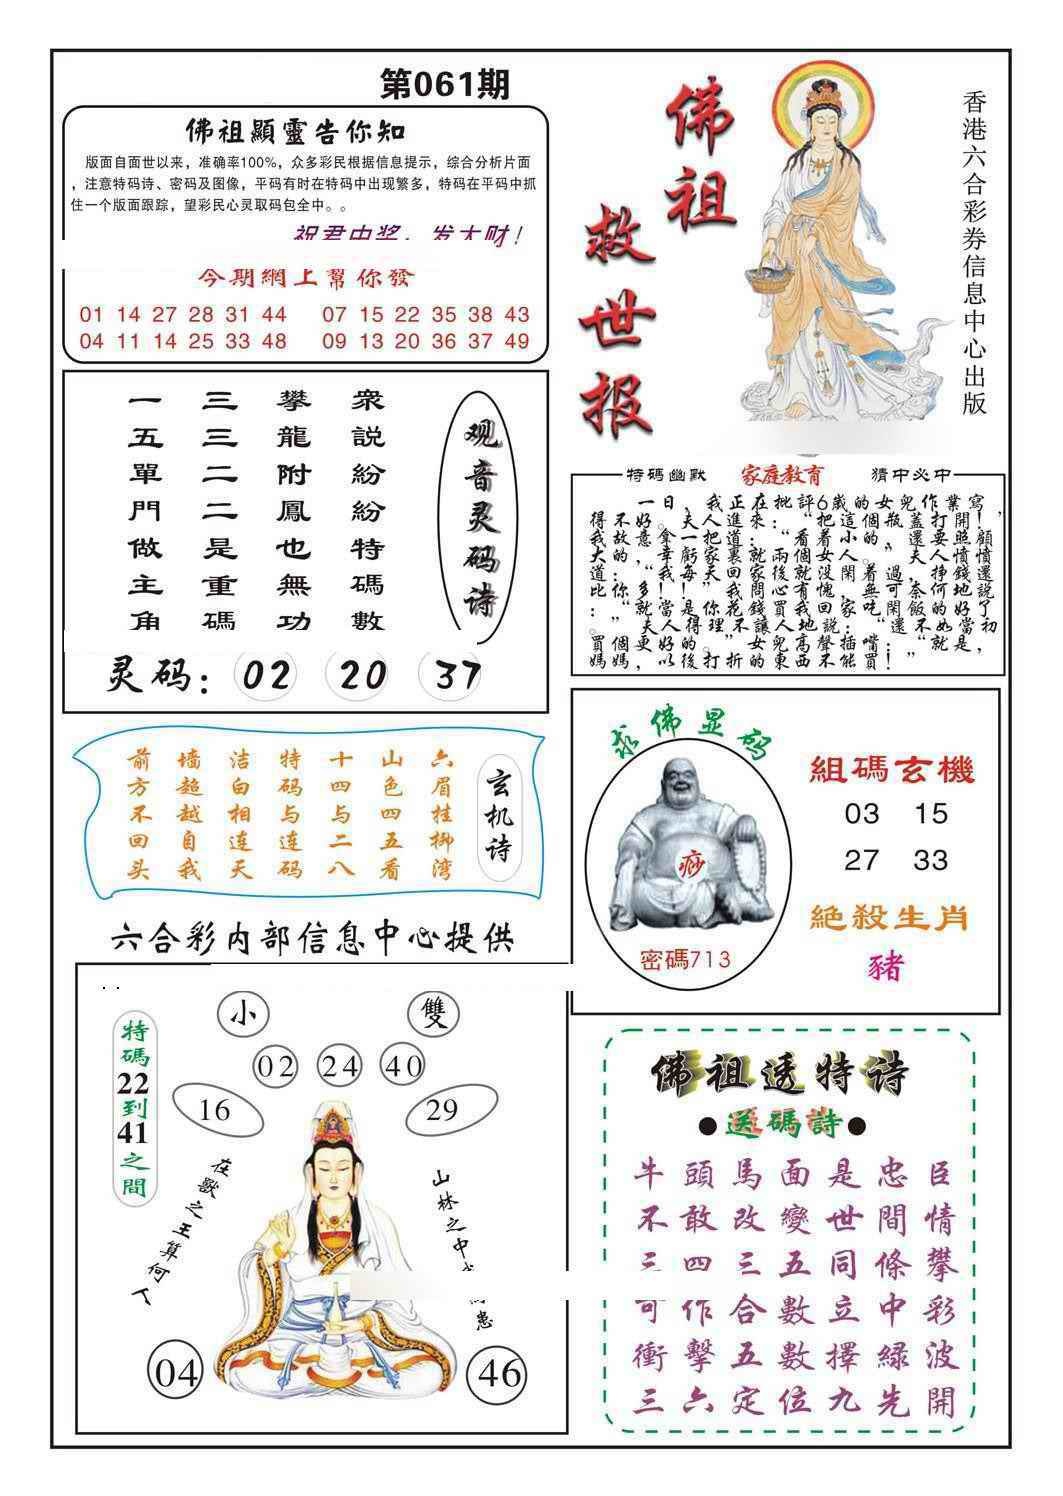 第061期
佛祖顯靈告你知
版面自面世以来，准确率100%，众多彩民根据信息提示，综合分析片面
，注意特码诗、密码及图像，平码有时在特码中出现繁多，特码在平码中抓
住一个版面跟踪，望彩民心灵取码包全中。。
祝君中奖，发大财！
今期網上幫你發
01 14 27 28 31 44 07 15 22 35 38 43
04 11 14 25 33 48 09 13 20 36 37 49
佛祖
救世报
香港六合彩券信息中心出版
观音灵码诗
衆說紛紛特碼數
攀龍附鳳也無功
三三二二是重碼
一五單門做主角
灵码：02 20 37
特碼幽默 家庭教育 猜中必中
一日，我正在批評6歲的女兒作業寫
玄机诗
六眉挂柳湾
山色四五看
十四与二八
特码与连码
洁白相连天
墙超越自我
前方不回头
求佛显码
痧
密碼713
組碼玄機
03 15
27 33
絕殺生肖
豬
六合彩内部信息中心提供
小 雙
02 24 40
16 29
特碼22到41之間
在獸之王算何人
山林之中
患
04 46
佛祖透特诗
●送碼詩●
牛頭馬面是忠臣
不敢改變世間情
三四三五同條攀
可作合數立中彩
衝擊五數擇綠波
三六定位九先開